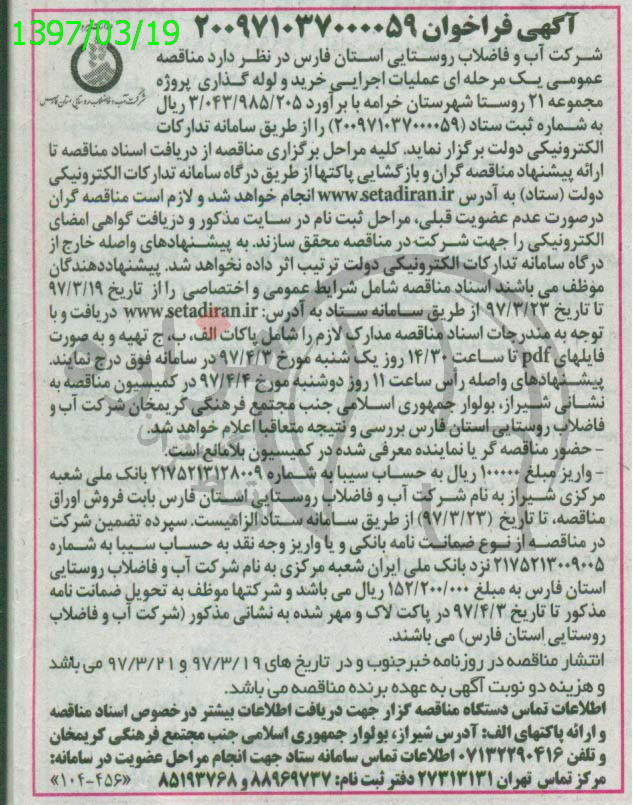 1397/03/19
آگهی فراخوان ۲۰۰۹۷۱۰۳۷۰۰۰۰۵۹
شرکت آب و فاضلاب روستایی استان فارس
شرکت آب و فاضلاب روستایی استان فارس در نظر دارد مناقصه
عمومی یک مرحله ای عملیات اجرایی خرید و لوله گذاری پروژه
مجموعه ۲۱ روستا شهرستان خرامه با برآورد ۳/۰۴۳/۹۸۵/۲۰۵ ریال
به شماره ثبت ستاد (۲۰۰۹۷۱۰۳۷۰۰۰۰۵۹) را از طریق سامانه تدارکات
الکترونیکی دولت برگزار نماید. کلیه مراحل برگزاری مناقصه از دریافت اسناد مناقصه تا
ارائه پیشنهاد مناقصه گران و بازگشایی پاکتها از طریق درگاه سامانه تدارکات الکترونیکی
دولت (ستاد) به آدرس www.setadiran.ir انجام خواهد شد و لازم است مناقصه گران
درصورت عدم عضویت قبلی، مراحل ثبت نام در سایت مذکور و دریافت گواهی امضای
الکترونیکی را جهت شرکت در مناقصه محقق سازند. به پیشنهادهای واصله خارج از
درگاه سامانه تدارکات الکترونیکی دولت ترتیب اثر داده نخواهد شد. پیشنهاددهندگان
موظف می باشند اسناد مناقصه شامل شرایط عمومی و اختصاصی را از تاریخ ۹۷/۳/۱۹
تا تاریخ ۹۷/۳/۲۳ از طریق سامانه ستاد به آدرس: www.setadiran.ir دریافت و با
توجه به مندرجات اسناد مناقصه مدارک لازم را شامل پاکات الف، ب، ج تهیه و به صورت
فایلهای pdf تا ساعت ۱۴/۳۰ روز یک شنبه مورخ ۹۷/۴/۳ در سامانه فوق درج نمایند.
پیشنهادهای واصله رأس ساعت ۱۱ روز دوشنبه مورخ ۹۷/۴/۴ در کمیسیون مناقصه به
نشانی شیراز، بولوار جمهوری اسلامی جنب مجتمع فرهنگی کریمخان شرکت آب و
فاضلاب روستایی استان فارس بررسی و نتیجه متعاقبا اعلام خواهد شد.
- حضور مناقصه گر یا نماینده معرفی شده در کمیسیون بلامانع است.
- واریز مبلغ ۱۰۰۰۰۰ ریال به حساب سیبا به شماره ۲۱۷۵۲۱۳۱۲۸۰۰۹ بانک ملی شعبه
مرکزی شیراز به نام شرکت آب و فاضلاب روستایی استان فارس بابت فروش اوراق
مناقصه، تا تاریخ (۹۷/۳/۲۳) از طریق سامانه ستاد الزامیست. سپرده تضمین شرکت
در مناقصه از نوع ضمانت نامه بانکی و یا واریز وجه نقد به حساب سیبا به شماره
۲۱۷۵۲۱۳۰۰۹۰۰۵ نزد بانک ملی ایران شعبه مرکزی به نام شرکت آب و فاضلاب روستایی
استان فارس به مبلغ ۱۵۲/۲۰۰/۰۰۰ ریال می باشد و شرکتها موظف به تحویل ضمانت نامه
مذکور تا تاریخ ۹۷/۴/۳ در پاکت لاک و مهر شده به نشانی مذکور (شرکت آب و فاضلاب
روستایی استان فارس) می باشند.
انتشار مناقصه در روزنامه خبرجنوب و در تاریخ های ۹۷/۳/۱۹ و ۹۷/۳/۲۱ می باشد
و هزینه دو نوبت آگهی به عهده برنده مناقصه می باشد.
اطلاعات تماس دستگاه مناقصه گزار جهت دریافت اطلاعات بیشتر درخصوص اسناد مناقصه
و ارائه پاکتهای الف: آدرس شیراز، بولوار جمهوری اسلامی جنب مجتمع فرهنگی کریمخان
و تلفن ۰۷۱۳۲۲۹۰۴۱۶ اطلاعات تماس سامانه ستاد جهت انجام مراحل عضویت در سامانه:
مرکز تماس تهران ۲۷۳۱۳۱۳۱ دفتر ثبت نام: ۸۸۹۶۹۷۳۷ و ۸۵۱۹۳۷۶۸ «۱۰۴-۴۵۶»